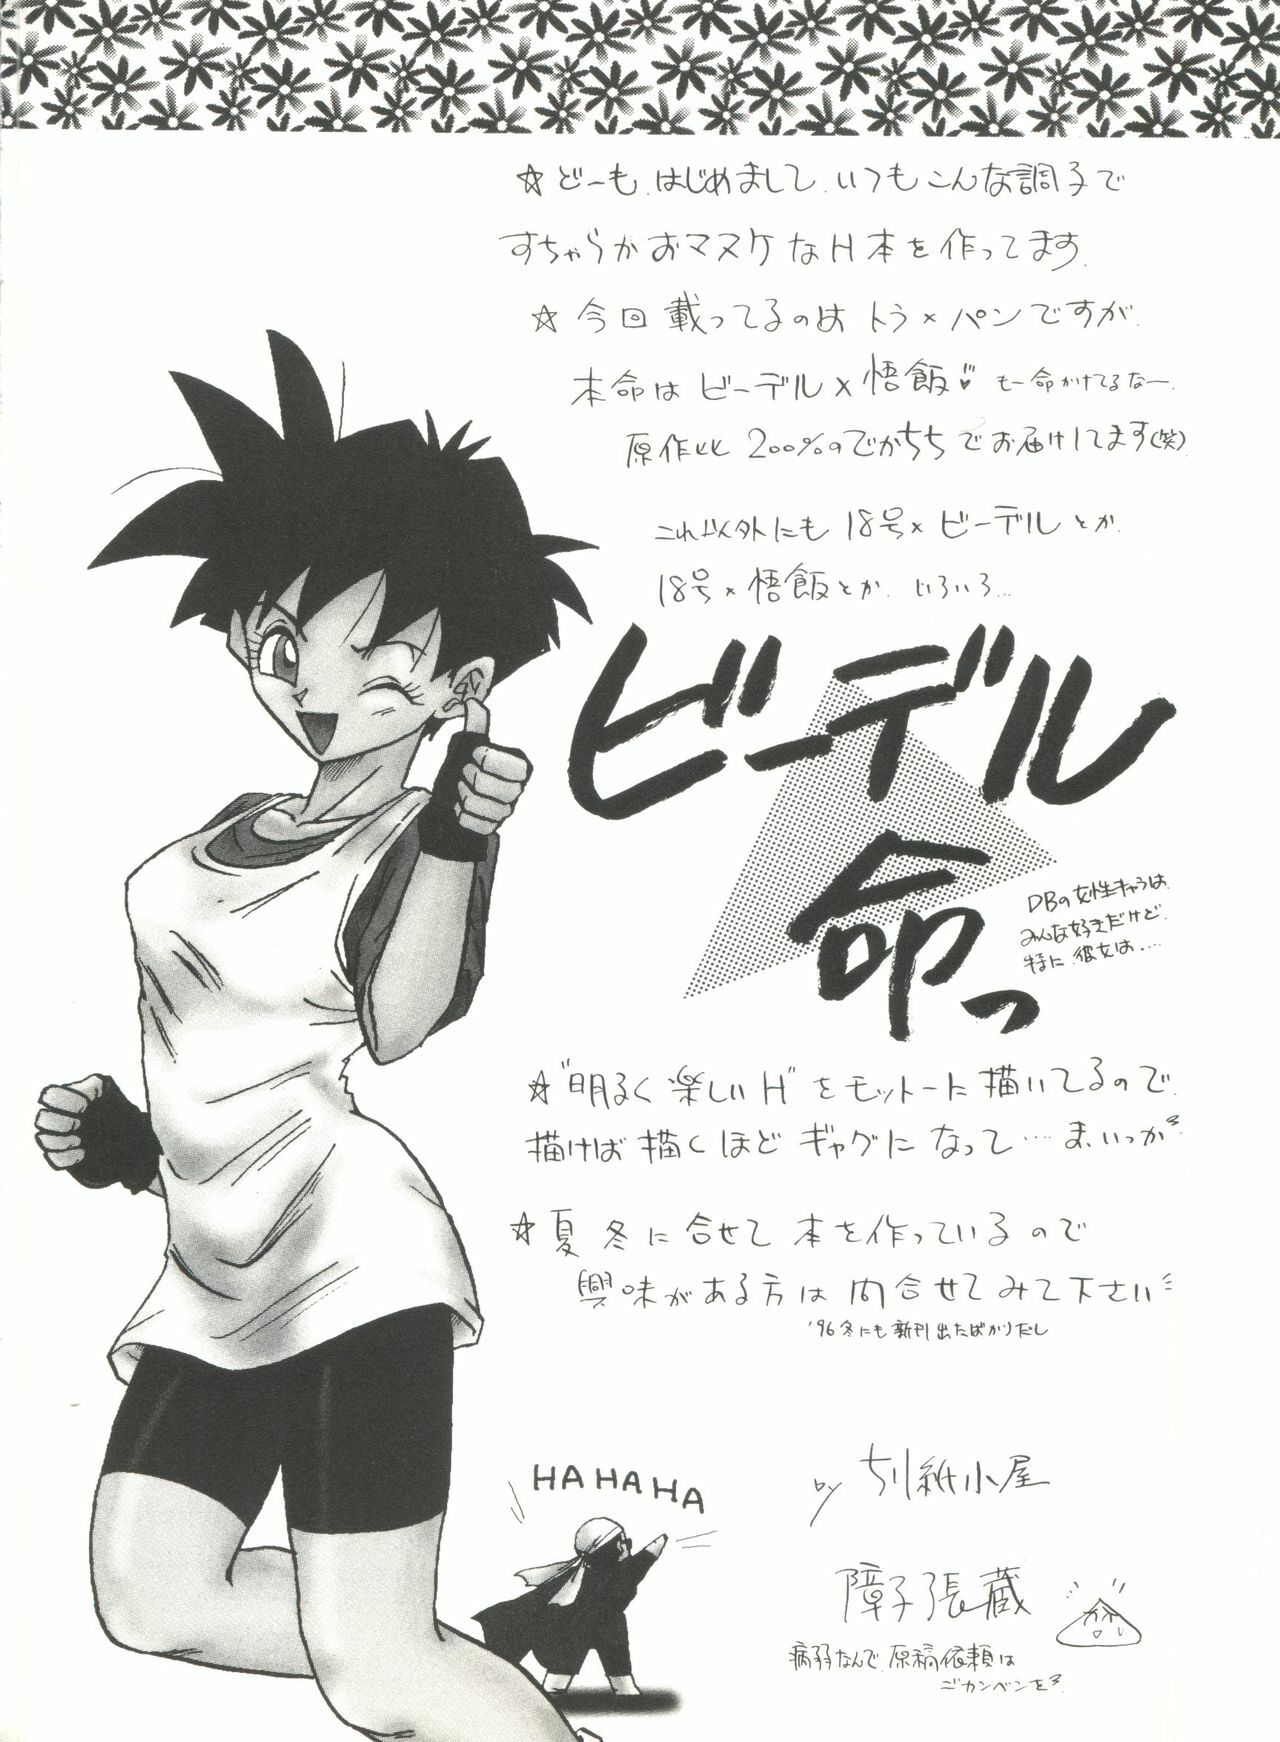 ☆どーも はじめまして いつもこんな調子で
すちゃらかおマヌケなH本を作ってます
☆今回載ってるのは トラ×パンですが
本命は ビーデル×悟飯♡ もー命かけてるなー
原作比 200%のでかちちでお届けしてます(笑)
これ以外にも 18号×ビーデルとか
18号×悟飯とか いろいろ…
ビーデル
命っ
DBの女性キャラは
みんな好きだけど
特に 彼女は‥‥
☆"明るく楽しいH"をモットーに描いてるので
描けば描くほど ギャグになって‥‥ま、いっか
☆夏冬に合せて 本を作っているので
興味がある方は 問合せてみて下さい
'96冬にも新刊出たばかりだし
HA HA HA
by ちり紙小屋
障子張蔵
病弱なんで 原稿依頼は
ごカンベンを